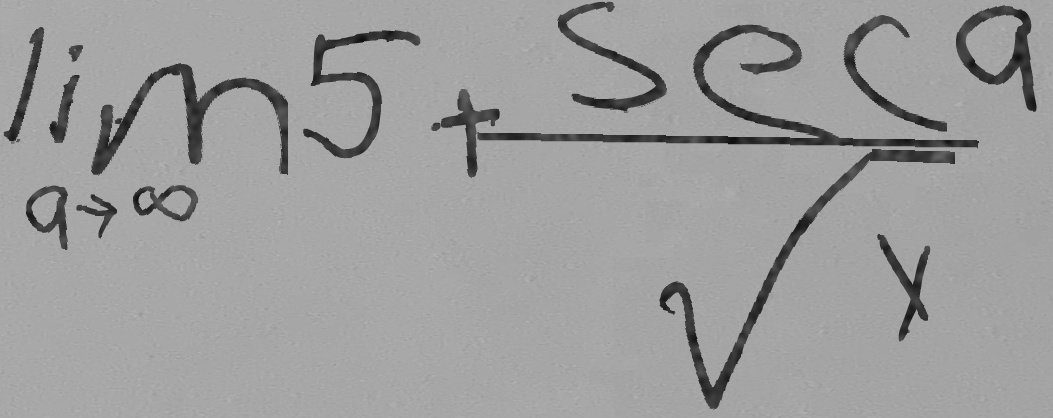 lim 5 + sec a / √x
a → ∞